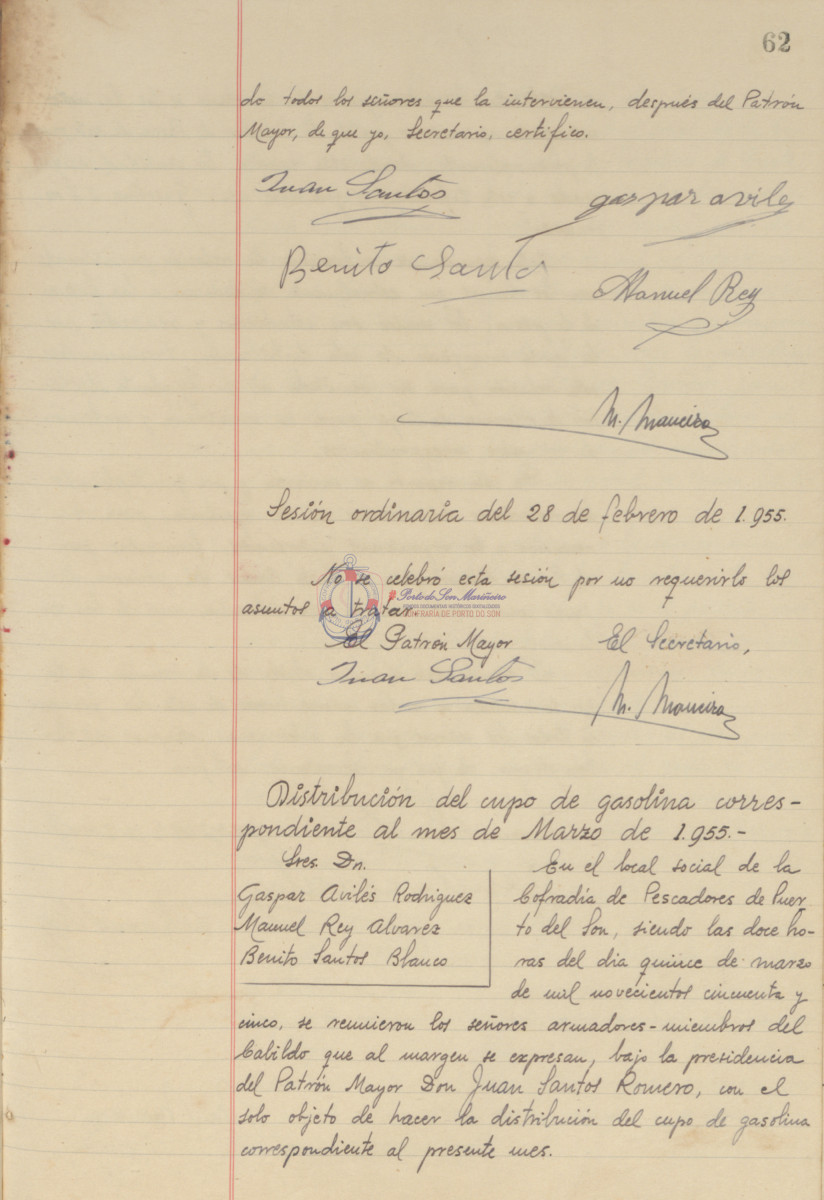 62
do todos los señores que la intervienen, después del Patrón
Mayor, de que yo, Secretario, certifico.
Juan Santos
gaspar aviles
Benito Santo
Manuel Rey
M. Maneiro
Sesión ordinaria del 28 de febrero de 1.955.
No se celebró esta sesión por no requerirlo los
asuntos a tratar.
Porto do Son Mariñeiro
CONFRARIA DE PORTO DO SON
El Patrón Mayor
El Secretario,
Juan Santos
M. Maneiro
Distribución del cupo de gasolina corres-
pondiente al mes de Marzo de 1.955.-
Sres. Dn.
Gaspar Avilés Rodriguez
Manuel Rey Alvarez
Benito Santos Blanco
En el local social de la
Cofradía de Pescadores de Puer-
to del Son, siendo las doce ho-
ras del dia quince de marzo
de mil novecientos cincuenta y
cinco, se reunieron los señores armadores-miembros del
Cabildo que al margen se expresan, bajo la presidencia
del Patrón Mayor Don Juan Santos Romero, con el
solo objeto de hacer la distribución del cupo de gasolina
correspondiente al presente mes.